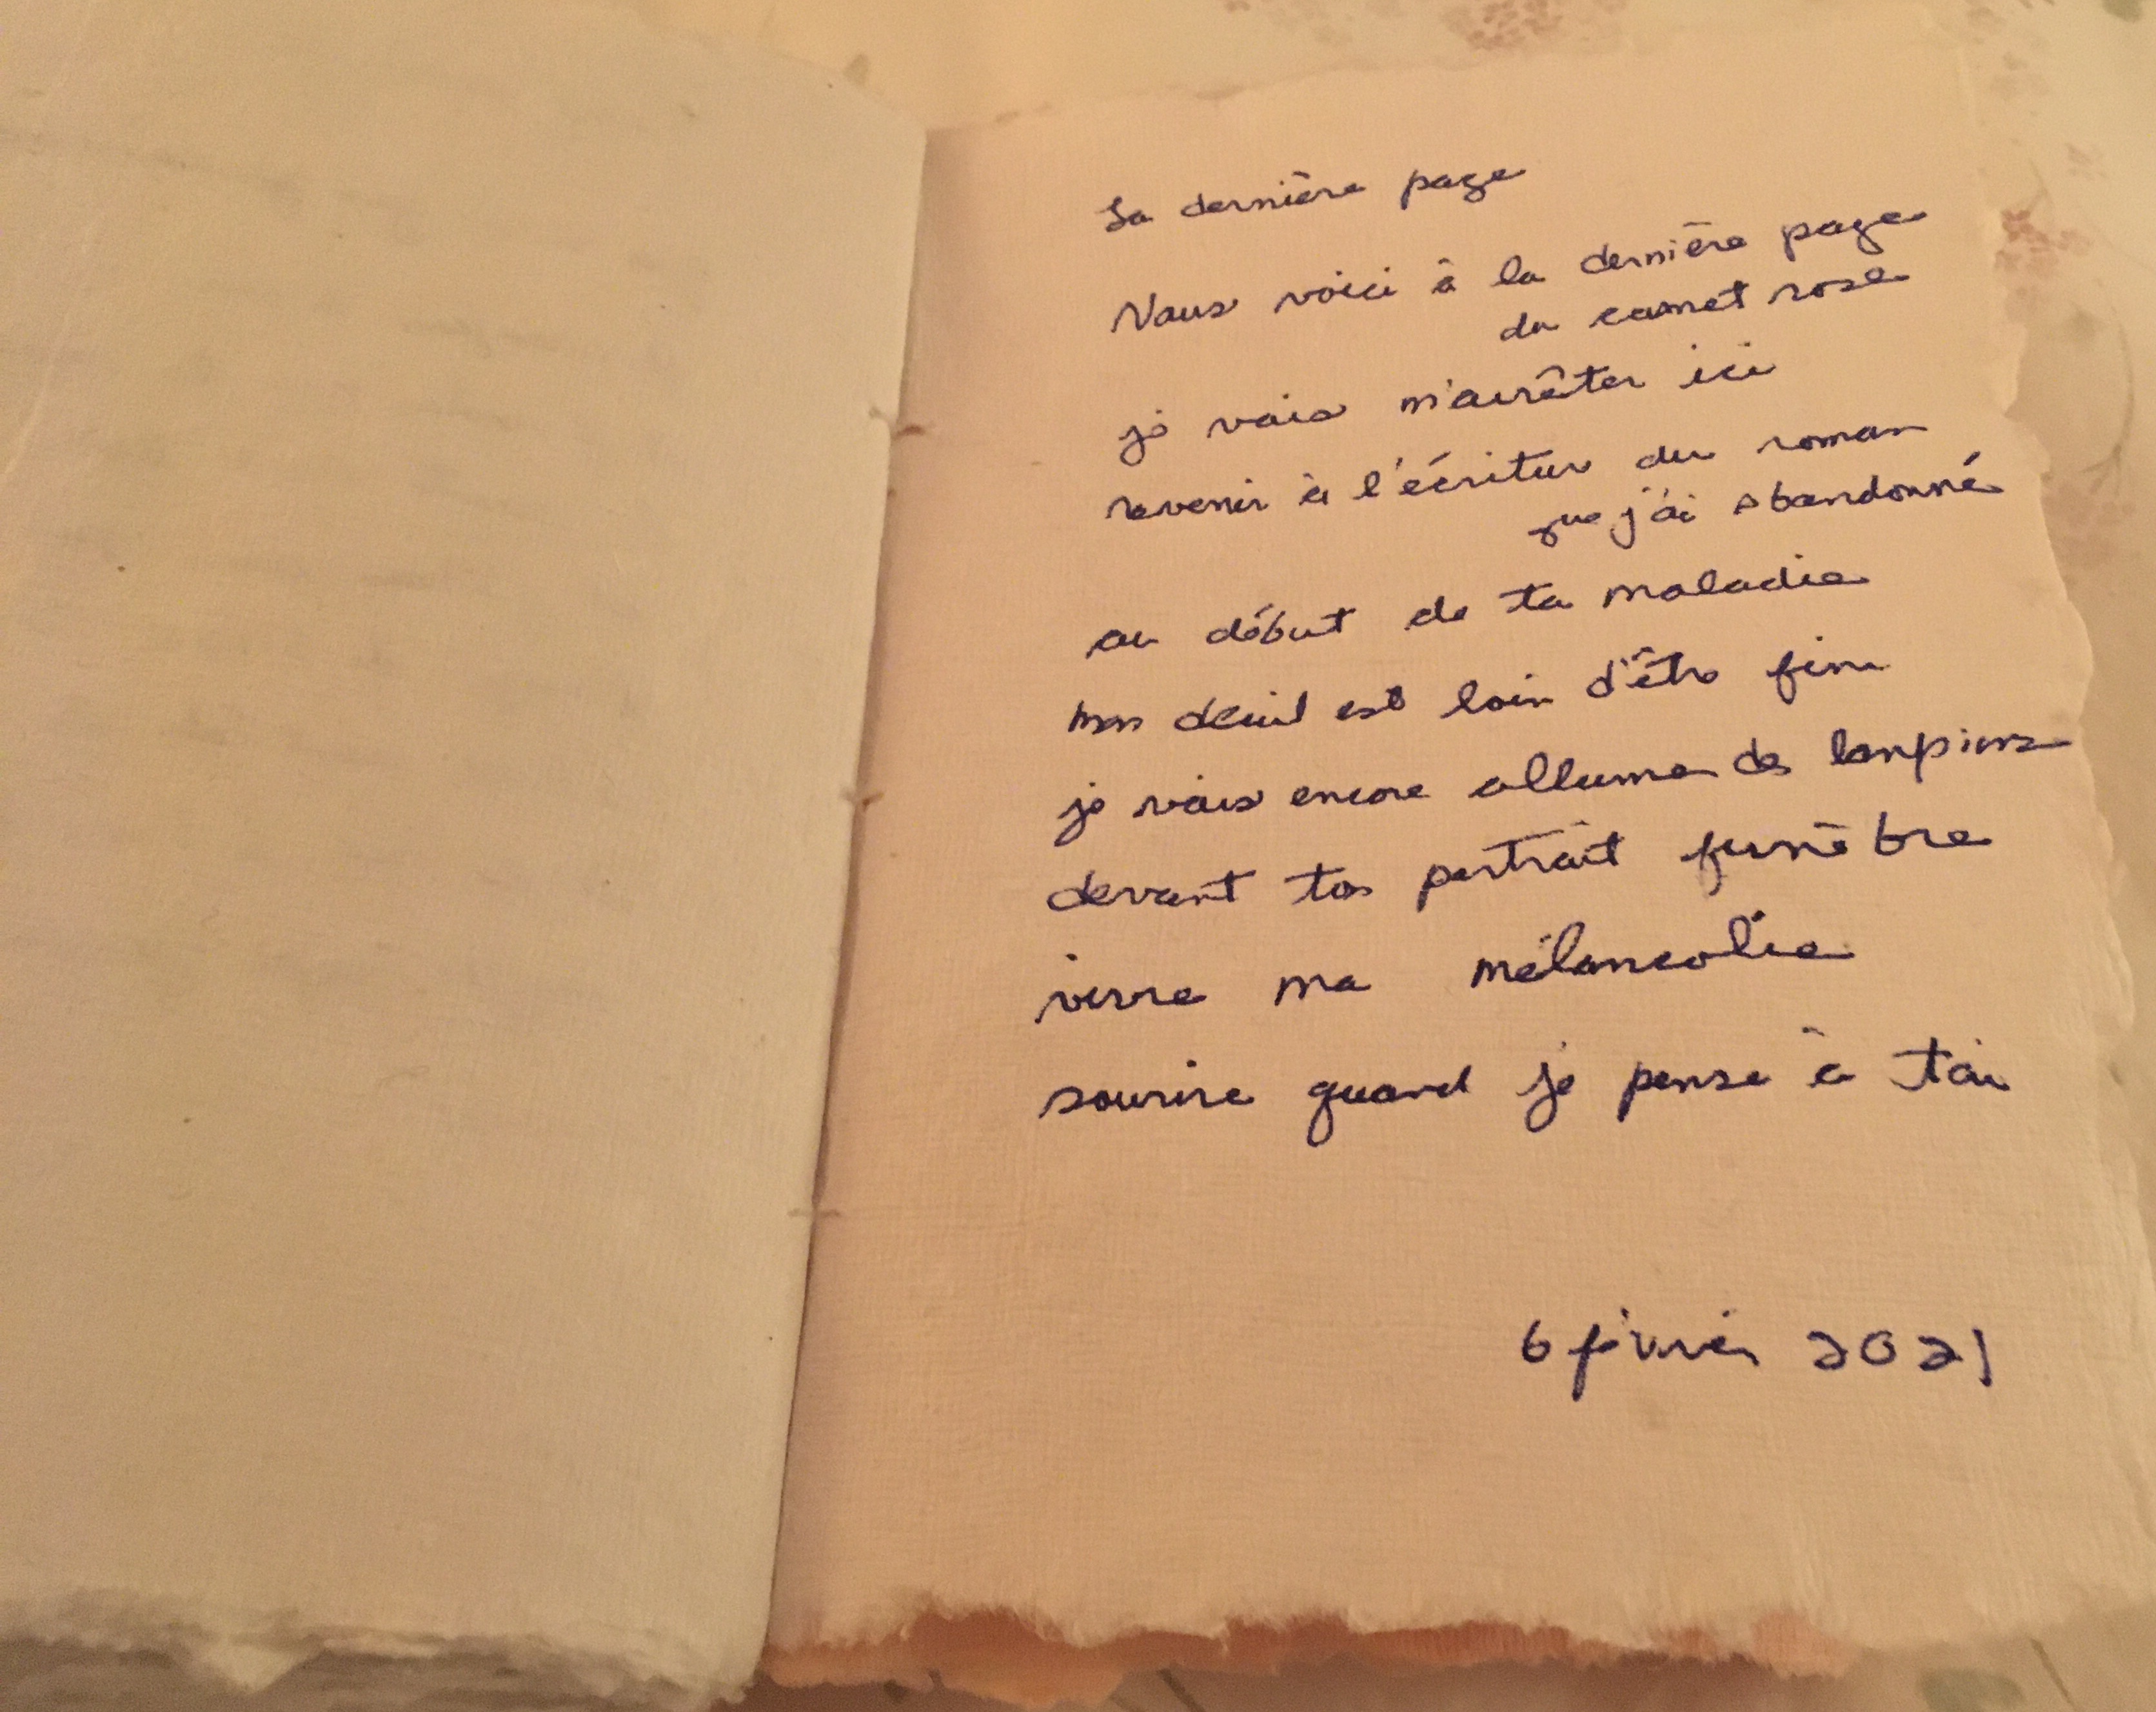 La dernière page
Nous voici à la dernière page
du carnet rose
je vais m'arrêter ici
revenir à l'écriture du roman
que j'ai abandonné
au début de ta maladie
mon deuil est loin d'être fini
je vais encore allumer des lampions
devant ton portrait funèbre
vivre ma mélancolie
sourire quand je pense à toi
6 février 2021